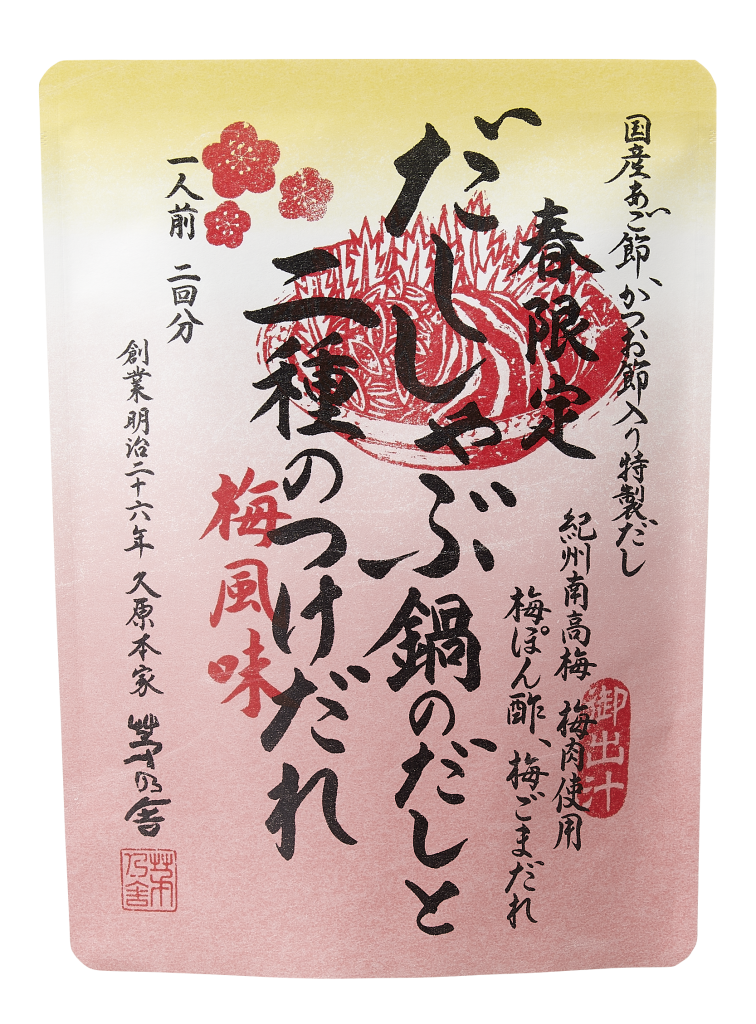 国産あご節かつお節入り特製だし
春限定
紀州南高梅 梅肉使用
梅ぽん酢、梅ごまだれ
御出汁
だししゃぶ鍋のだしと
二種のつけだれ
梅風味
一人前 二回分
創業明治二十六年 久原本家 茅乃舎
茅乃舎